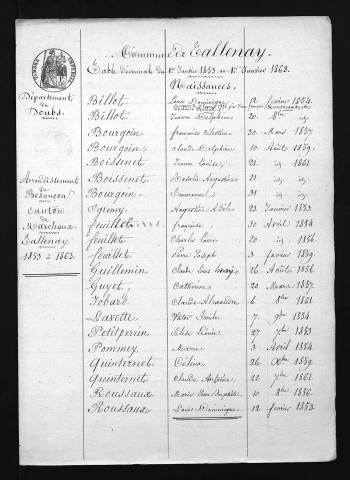 Commune de Tallenay.
Table décennale du 1er Janvier 1853 au 1er Janvier 1863.
Naissances.
Département
du
Doubs.
Arrondissement
de
Besançon
Canton
de
Marchaux
Tallenay.
1853 à 1863.
Billot Louis Dominique 12 février 1854.
Billot Jeanne Delphine 8 id
Bourgoin françoise 30 Mars 1857.
Bourgoin claude Delphin 10 Août 1859.
Boissenet Jeanne Louise 21 id 1861
Boissenet Natalie Augustine 21 id id
Bourgoin Emmanuel 31 id id
Augustine Adèle 23 Janvier 1853.
feuillet françoise 30 Avril 1854
feuillet Charles Louis 20 id 1856.
feuillet Pierre Joseph 3 février 1859.
Guillemin Claude Louis 26 Août 1856
Guyet, Catherine 20 Mars 1857.
Jobard Claude Alexandre 6 8bre 1861
Lavette Victor Emile 7 9bre 1854
Petitperrin Elise Lévie 27 7bre 1853
Pommey Marie 3 Avril 1854
Quinternet Célina 26 Xbre 1859.
Quinternet Claude Antoine 22 7bre 1861.
Roussaux Marie Jean Baptiste 10 8bre 1856.
Roussaux Louis Dominique 12 février 1853.